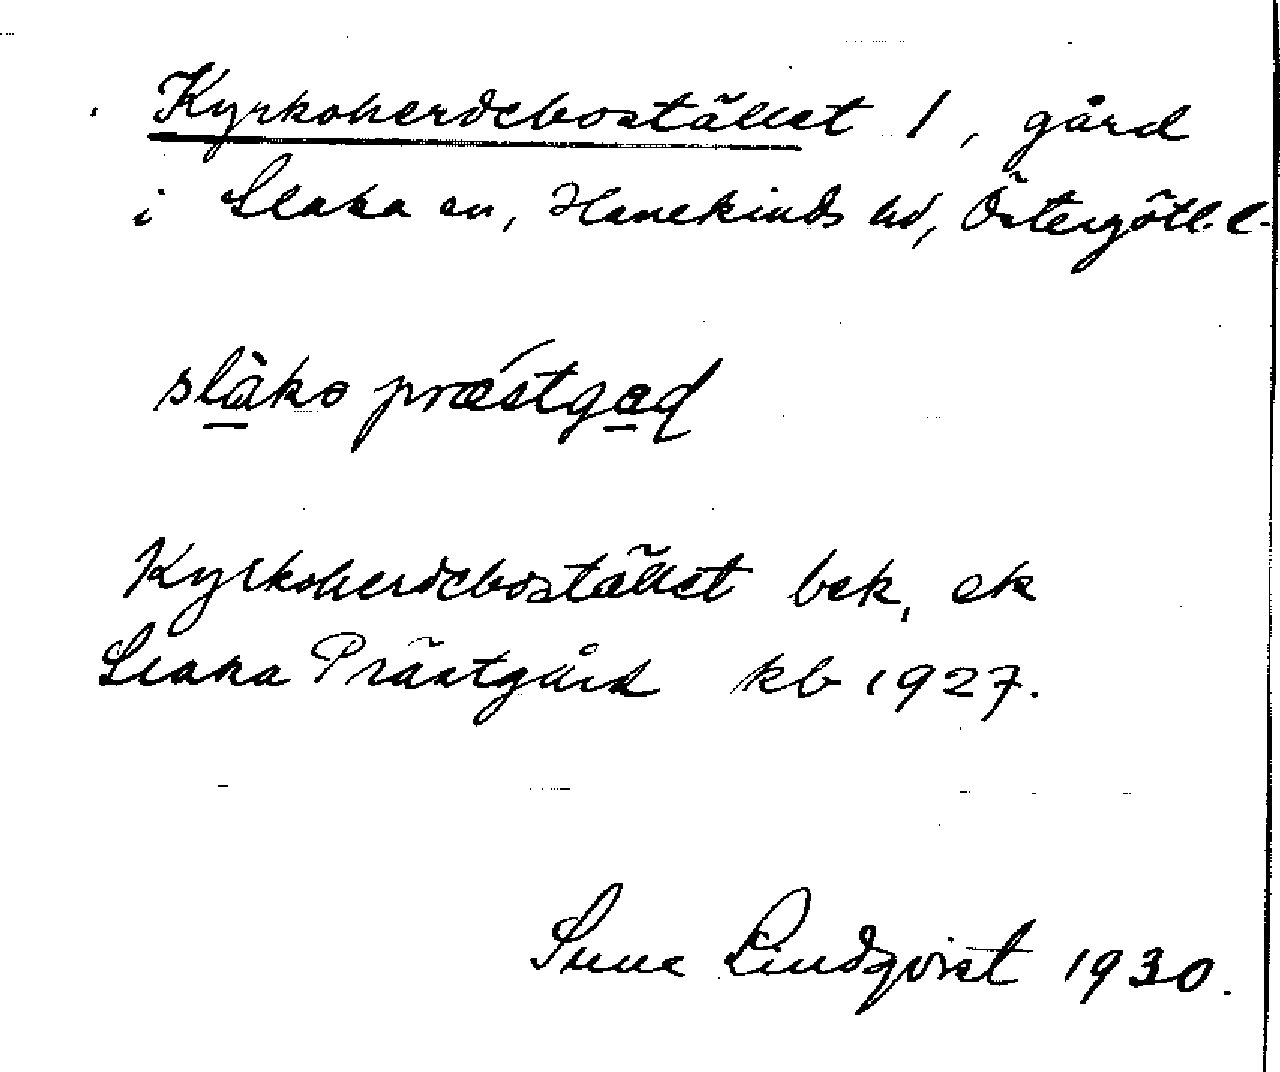 Kyrkoherdebostället 1, gård
i Slaka sn, Hanekinds hd, Östergötl. l.
slàko prǽstgad
Kyrkoherdebostället bek, ek
Slaka Prästgård kb 1927.
Sune Lindqvist 1930.